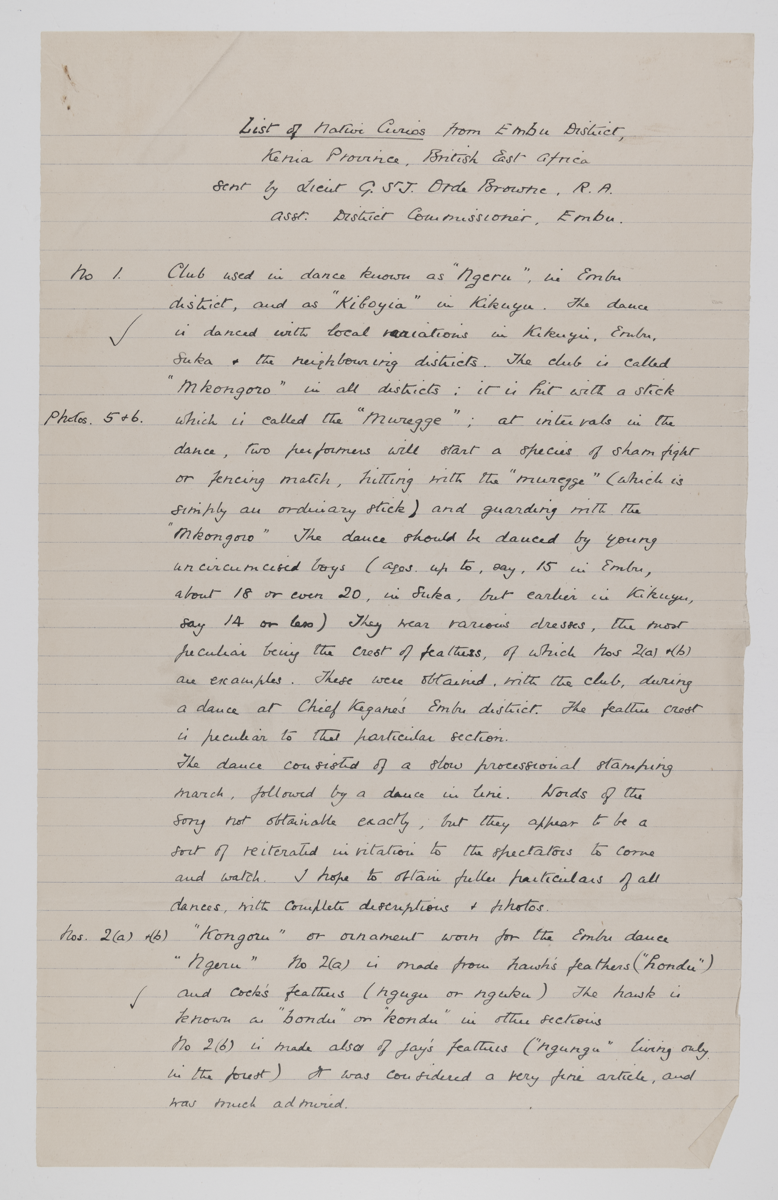 List of Native Curios from Embu District,
Kenia Province, British East Africa
sent by Lieut G. St J. Orde Browne, R.A.
Asst. District Commissioner, Embu.
No 1. Club used in dance known as "Ngeru", in Embu
district, and as "Kiboyia" in Kikuyu. The dance
is danced with local variations in Kikuyu, Embu,
Suka & the neighbouring districts. The club is called
"Mkongoro" in all districts; it is hit with a stick
Photos. 5 & 6. which is called the "Muregge"; at intervals in the
dance, two performers will start a species of sham fight
or fencing match, hitting with the "muregge" (which is
simply an ordinary stick) and guarding with the
"Mkongoro" The dance should be danced by young
uncircumcised boys (ages. up to, say, 15 in Embu,
about 18 or even 20, in Suka, but earlier in Kikuyu,
say 14 or less) They wear various dresses, the most
peculiar being the crest of feathers, of which Nos 2(a) & (b)
are examples. These were obtained, with the club, during
a dance at Chief Kegane's Embu district. The feather crest
is peculiar to that particular section.
The dance consisted of a slow processional stamping
march, followed by a dance in line. Words of the
song not obtainable exactly, but they appear to be a
sort of reiterated invitation to the spectators to come
and watch. I hope to obtain fuller particulars of all
dances, with complete descriptions & photos.
Nos. 2(a) & (b) "Kongoru" or ornament worn for the Embu dance
"Ngeru" No 2(a) is made from hawk's feathers ("hondu")
and cock's feathers (ngugu or nguku) The hawk is
known as "bondu" or "kondu" in other sections
No 2(b) is made also of jay's feathers ("ngungu" living only
in the forest) It was considered a very fine article, and
was much admired.